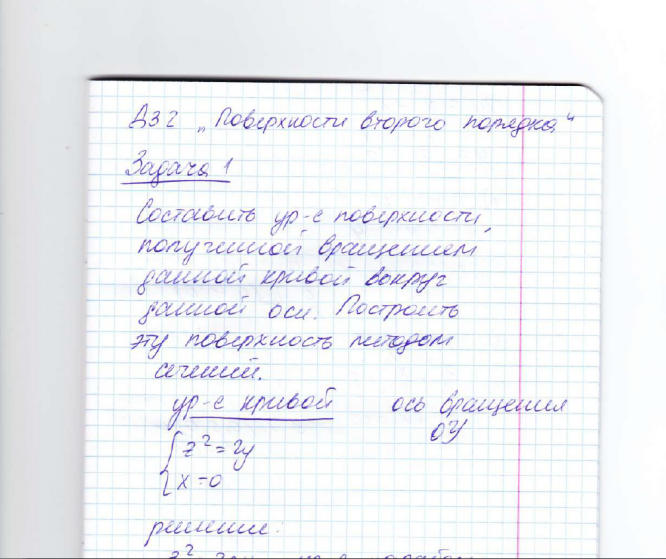 ДЗ 2 „Поверхности второго порядка"
Задача 1
Составить ур-е поверхности,
полученной вращением
данной кривой вокруг
данной оси. Построить
эту поверхность методом
сечений.
ур-е кривой ось вращения
OY
{ z² = 2y
x = 0
решение: